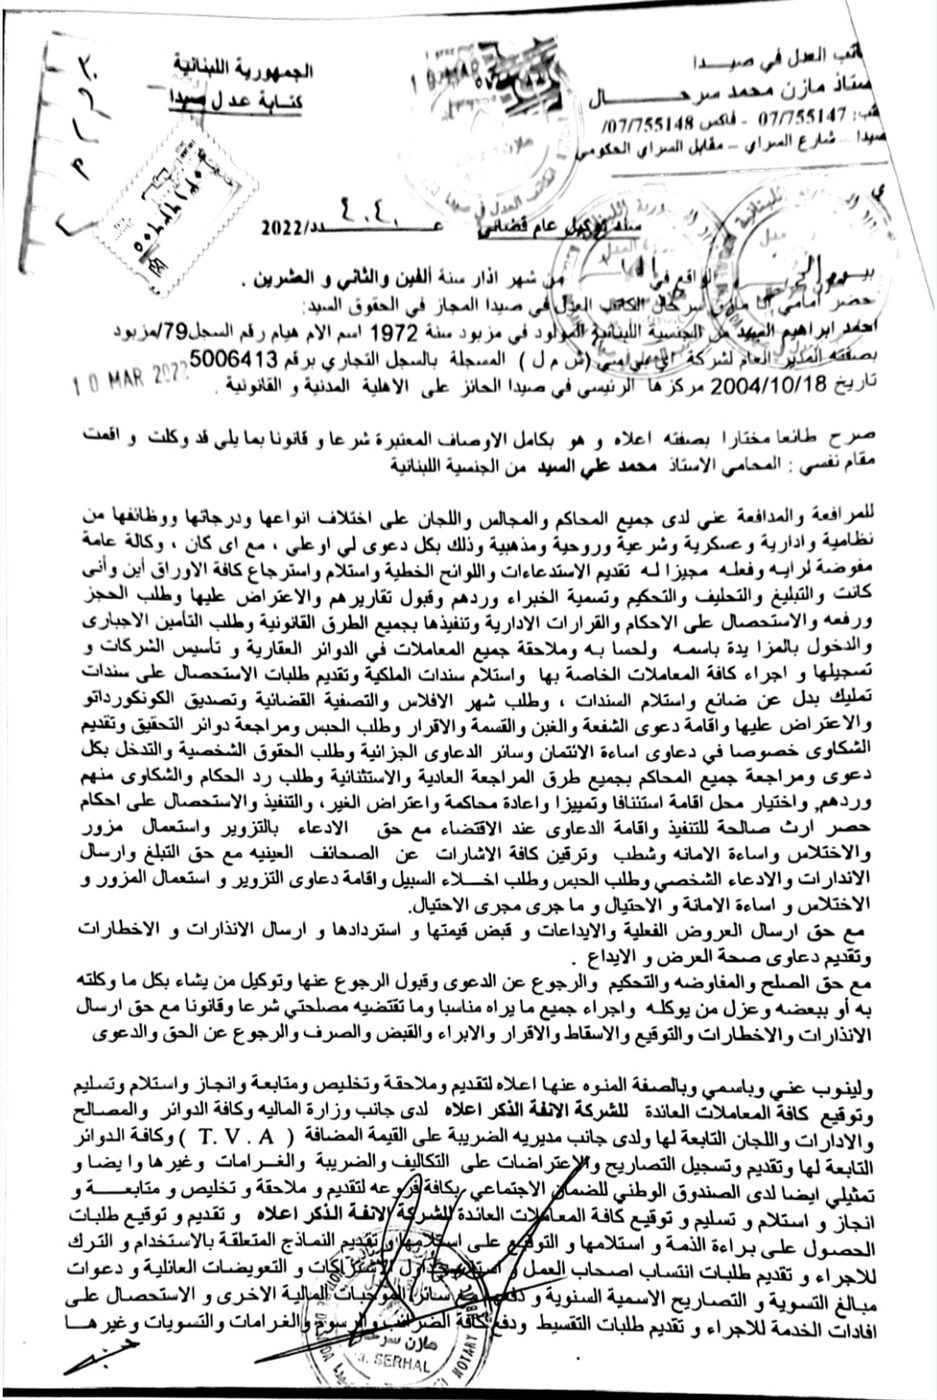 الجمهورية اللبنانية
كتابة عدل صيدا
كاتب العدل في صيدا
الاستاذ مازن محمد سرحال
07/755147 - فاكس 07/755148/
صيدا - شارع السراي - مقابل السراي الحكومي
سند توكيل عام قضائي عدد/2022 ٤٠٤٠
بيوم الواقع في من شهر اذار سنة ألفين والثاني و العشرين .
حضر امامي انا مازن سرحال الكاتب العدل في صيدا المجاز في الحقوق السيد:
احمد ابراهيم السيد من الجنسية اللبنانية المولود في مزبود سنة 1972 اسم الام هيام رقم السجل79/مزبود
بصفته المدير العام لشركة (ش م ل ) المسجلة بالسجل التجاري برقم 5006413
تاريخ 2004/10/18 مركزها الرئيسي في صيدا الحائز على الاهلية المدنية و القانونية .
10 MAR 2022
صرح طائعا مختارا بصفته اعلاه و هو بكامل الاوصاف المعتبرة شرعا و قانونا بما يلي قد وكلت و اقمت
مقام نفسي : المحامي الاستاذ محمد علي السيد من الجنسية اللبنانية
للمرافعة والمدافعة عني لدى جميع المحاكم والمجالس واللجان على اختلاف انواعها ودرجاتها ووظائفها من
نظامية وادارية وعسكرية وشرعية وروحية ومذهبية وذلك بكل دعوى لي اوعلي ، مع اى كان ، وكالة عامة
مفوضة لرايه وفعله مجيزا له تقديم الاستدعاءات واللوائح الخطية واستلام واسترجاع كافة الاوراق أين وأنى
كانت والتبليغ والتحليف والتحكيم وتسمية الخبراء وردهم وقبول تقاريرهم والاعتراض عليها وطلب الحجز
ورفعه والاستحصال على الاحكام والقرارات الادارية وتنفيذها بجميع الطرق القانونية وطلب التأمين الاجبارى
والدخول بالمزا يدة باسمه ولحسا به وملاحقة جميع المعاملات في الدوائر العقارية و تأسيس الشركات و
تسجيلها و اجراء كافة المعاملات الخاصة بها واستلام سندات الملكية وتقديم طلبات الاستحصال على سندات
تمليك بدل عن ضائع واستلام السندات ، وطلب شهر الافلاس والتصفية القضائية وتصديق الكونكورداتو
والاعتراض عليها واقامة دعوى الشفعة والغبن والقسمة والاقرار وطلب الحبس ومراجعة دوائر التحقيق وتقديم
الشكاوى خصوصا في دعاوى اساءة الائتمان وسائر الدعاوى الجزائية وطلب الحقوق الشخصية والتدخل بكل
دعوى ومراجعة جميع المحاكم بجميع طرق المراجعة العادية والاستثنائية وطلب رد الحكام والشكاوى منهم
وردهم, واختيار محل اقامة استئنافا وتمييزا واعادة محاكمة واعتراض الغير، والتنفيذ والاستحصال على احكام
حصر ارث صالحة للتنفيذ واقامة الدعاوى عند الاقتضاء مع حق الادعاء بالتزوير واستعمال مزور
والاختلاس واساءة الامانه وشطب وترقين كافة الاشارات عن الصحائف العينيه مع حق التبلغ وارسال
الانذارات والادعاء الشخصي وطلب الحبس وطلب اخلاء السبيل واقامة دعاوى التزوير و استعمال المزور و
الاختلاس و اساءة الامانة و الاحتيال و ما جرى مجرى الاحتيال.
مع حق ارسال العروض الفعلية والايداعات و قبض قيمتها و استردادها و ارسال الانذارات و الاخطارات
وتقديم دعاوى صحة العرض و الايداع .
مع حق الصلح والمفاوضه والتحكيم والرجوع عن الدعوى وقبول الرجوع عنها وتوكيل من يشاء بكل ما وكلته
به أو ببعضه وعزل من يوكله واجراء جميع ما يراه مناسبا وما تقتضيه مصلحتي شرعا وقانونا مع حق ارسال
الانذارات والاخطارات والتوقيع والاسقاط والاقرار والابراء والقبض والصرف والرجوع عن الحق والدعوى
ولينوب عني وباسمي وبالصفة المنوه عنها اعلاه لتقديم وملاحقة وتخليص ومتابعة وانجاز واستلام وتسليم
وتوقيع كافة المعاملات العائدة للشركة الانفة الذكر اعلاه لدى جانب وزارة الماليه وكافة الدوائر والمصالح
والادارات واللجان التابعة لها ولدى جانب مديريه الضريبة على القيمة المضافة ( T.V.A ) وكافة الدوائر
التابعة لها وتقديم وتسجيل التصاريح والاعتراضات على التكاليف والضريبة والغرامات وغيرها وايضا و
تمثيلي ايضا لدى الصندوق الوطني للضمان الاجتماعي بكافة فروعه لتقديم و ملاحقة و تخليص و متابعة و
انجاز و استلام و تسليم و توقيع كافة المعاملات العائدة للشركة الانفة الذكر اعلاه و تقديم و توقيع طلبات
الحصول على براءة الذمة و استلامها و التوقيع على استلامها و تقديم النماذج المتعلقة بالاستخدام و الترك
للاجراء و تقديم طلبات انتساب اصحاب العمل و جداول الاشتراكات و التعويضات العائلية و دعوات
مبالغ التسوية و التصاريح الاسمية السنوية و دفع سائر الموجبات المالية الاخرى و الاستحصال على
افادات الخدمة للاجراء و تقديم طلبات التقسيط ودفع كافة الضرائب والرسوم والغرامات والتسويات وغيرها
مازن سرحال
M. SERHAL
NOTARY